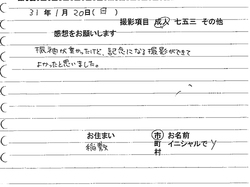 31年1月20日(日)
撮影項目 成人 七五三 その他
感想をお願いします
撮影伏東かったけど、記念になる撮影ができて
よかったと思いました。
お住まい 市 お名前
稲敷 町 イニシャルで Y
村